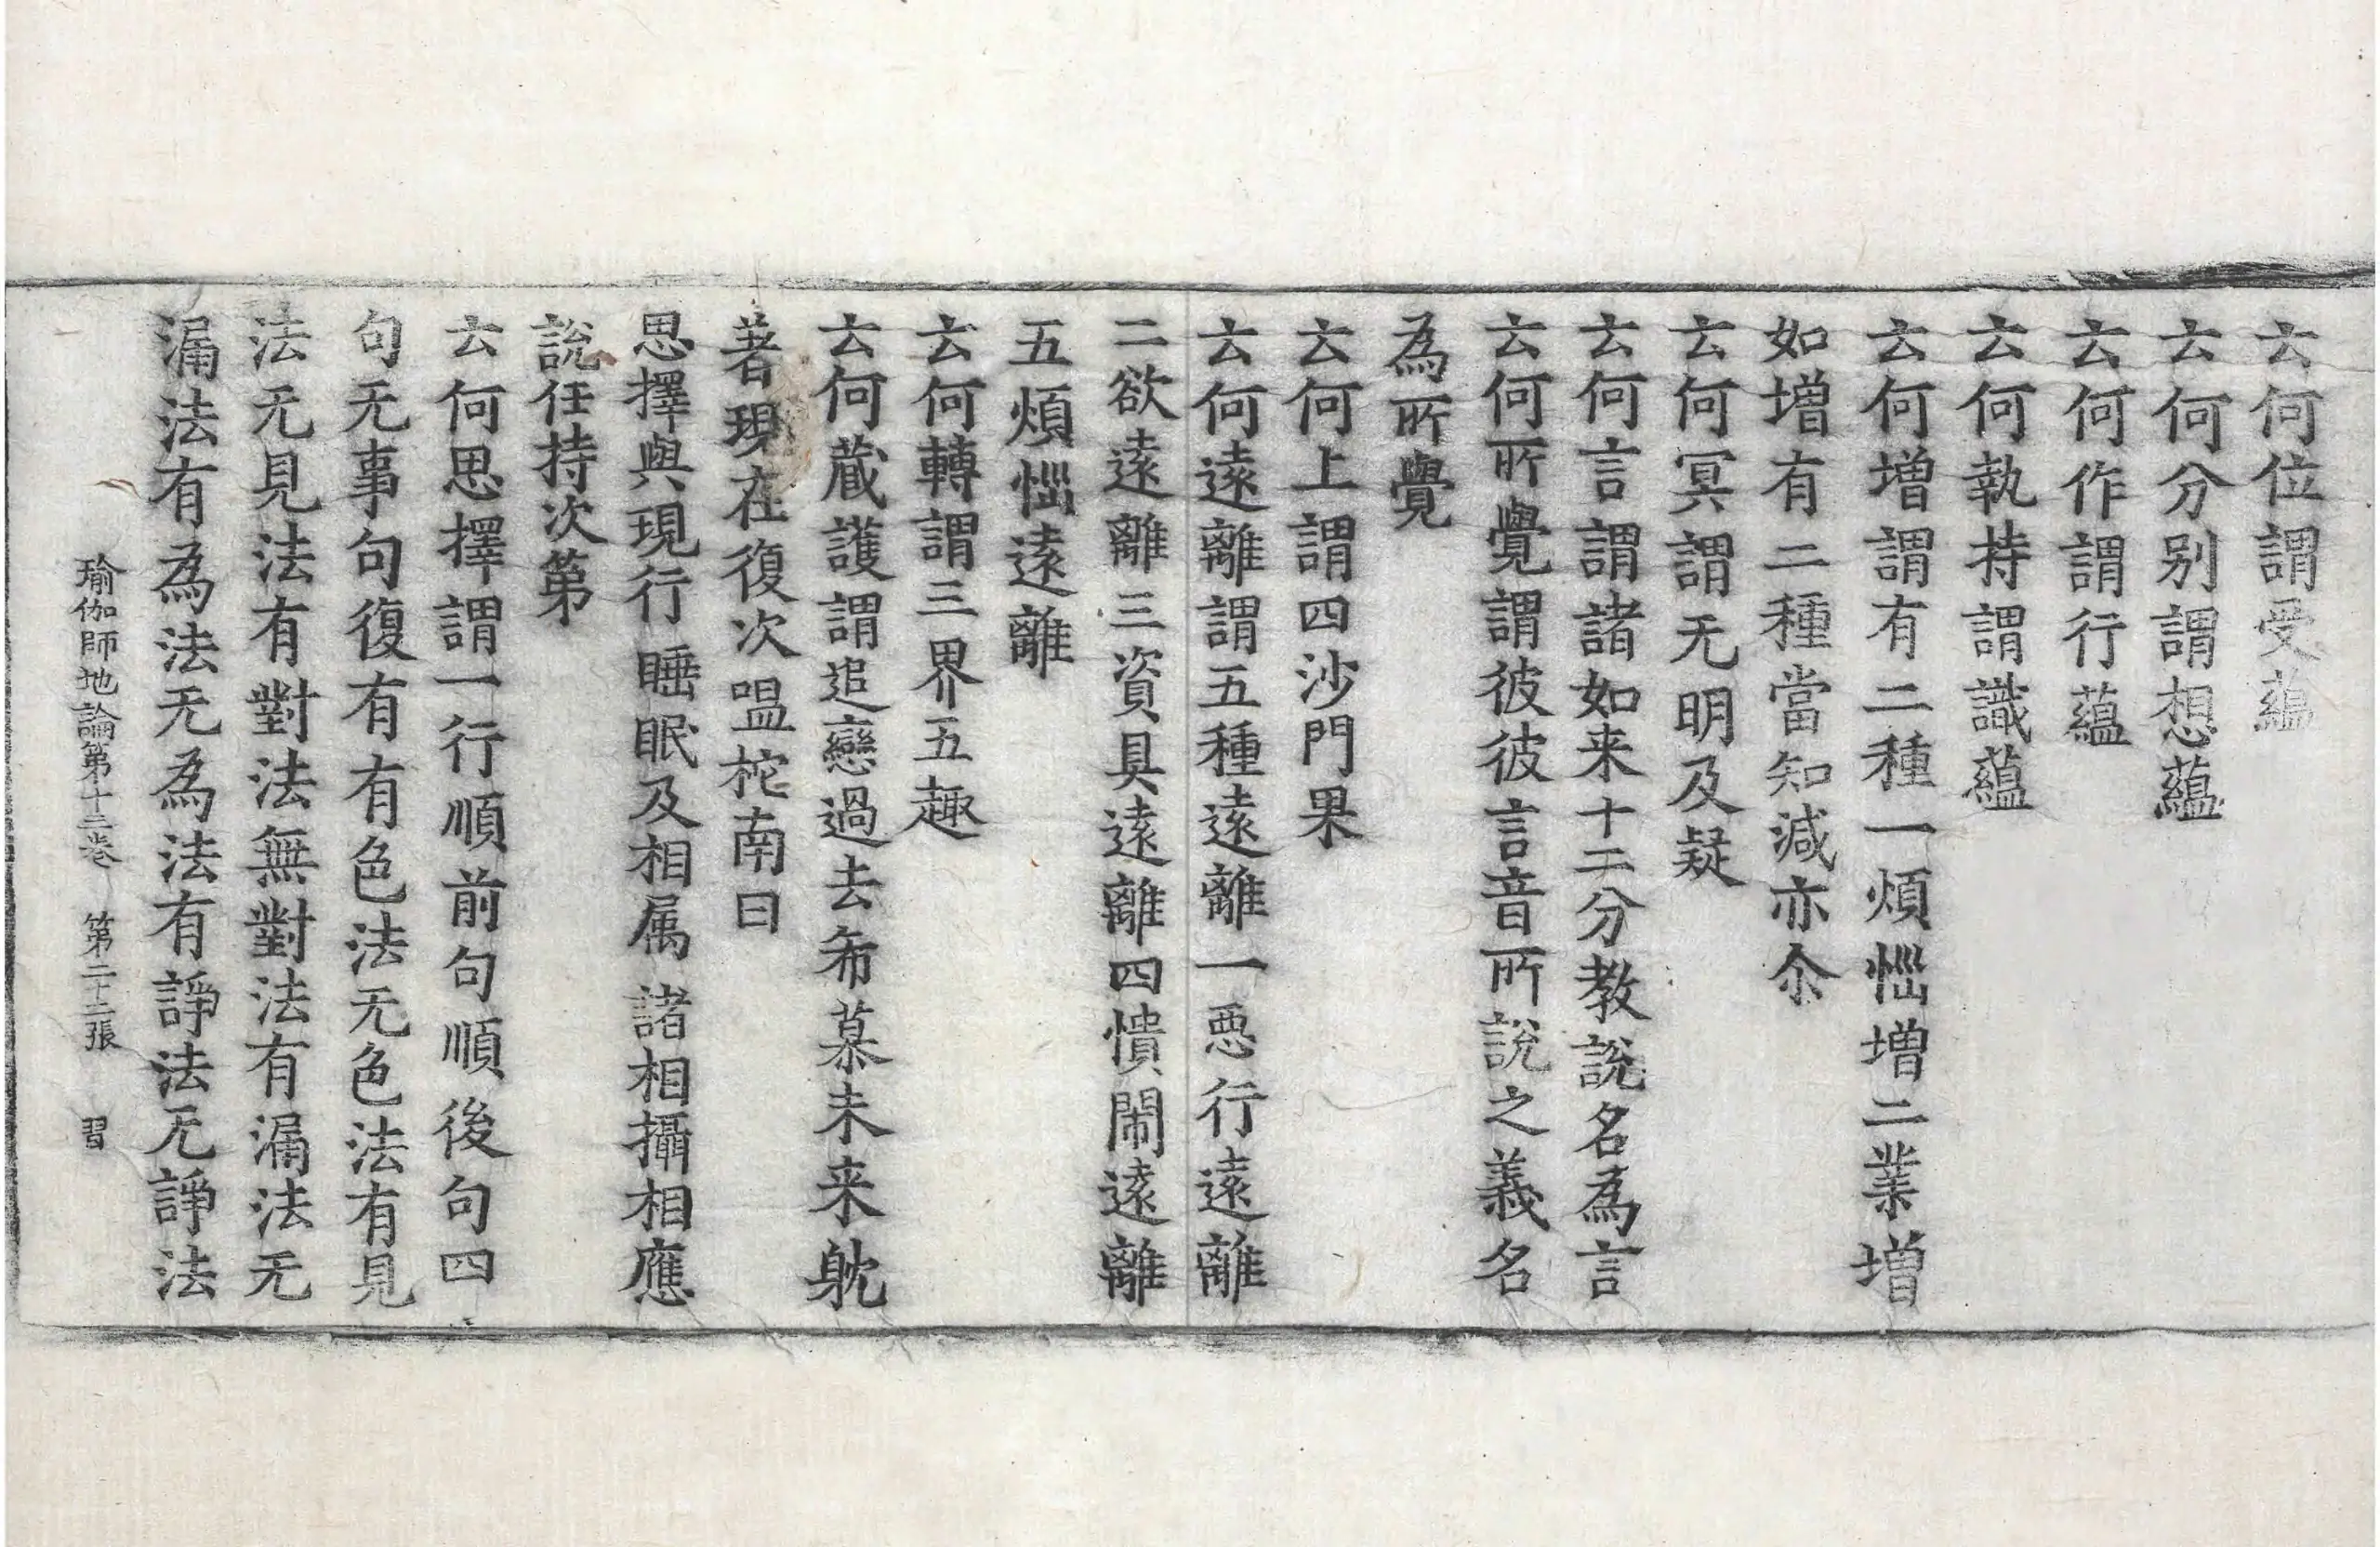 云何位謂受蘊
云何分别謂想蘊
云何作謂行蘊
云何執持謂識蘊
云何增謂有二種一煩惱增二業增
如增有二種當知減亦尒
云何冥謂无明及疑
云何言謂諸如来十二分教説名為言
云何所覺謂彼彼言音所説之義名
為所覺
云何上謂四沙門果
云何遠離謂五種遠離一惡行遠離
二欲遠離三資具遠離四憒閙遠離
五煩惱遠離
云何轉謂三界五趣
云何蔵護謂追戀過去希慕未来躭
著現在復次嗢柁南曰
思擇與現行 睡眠及相属 諸相攝相應
説任持次第
云何思擇謂一行順前句順後句四
句无事句復有有色法无色法有見
法无見法有對法無對法有漏法无
漏法有為法无為法有諍法无諍法
瑜伽師地論第十三巻 第二十二張 習